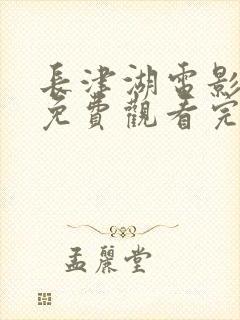 長津湖電影
免費觀看完
孟麗堂